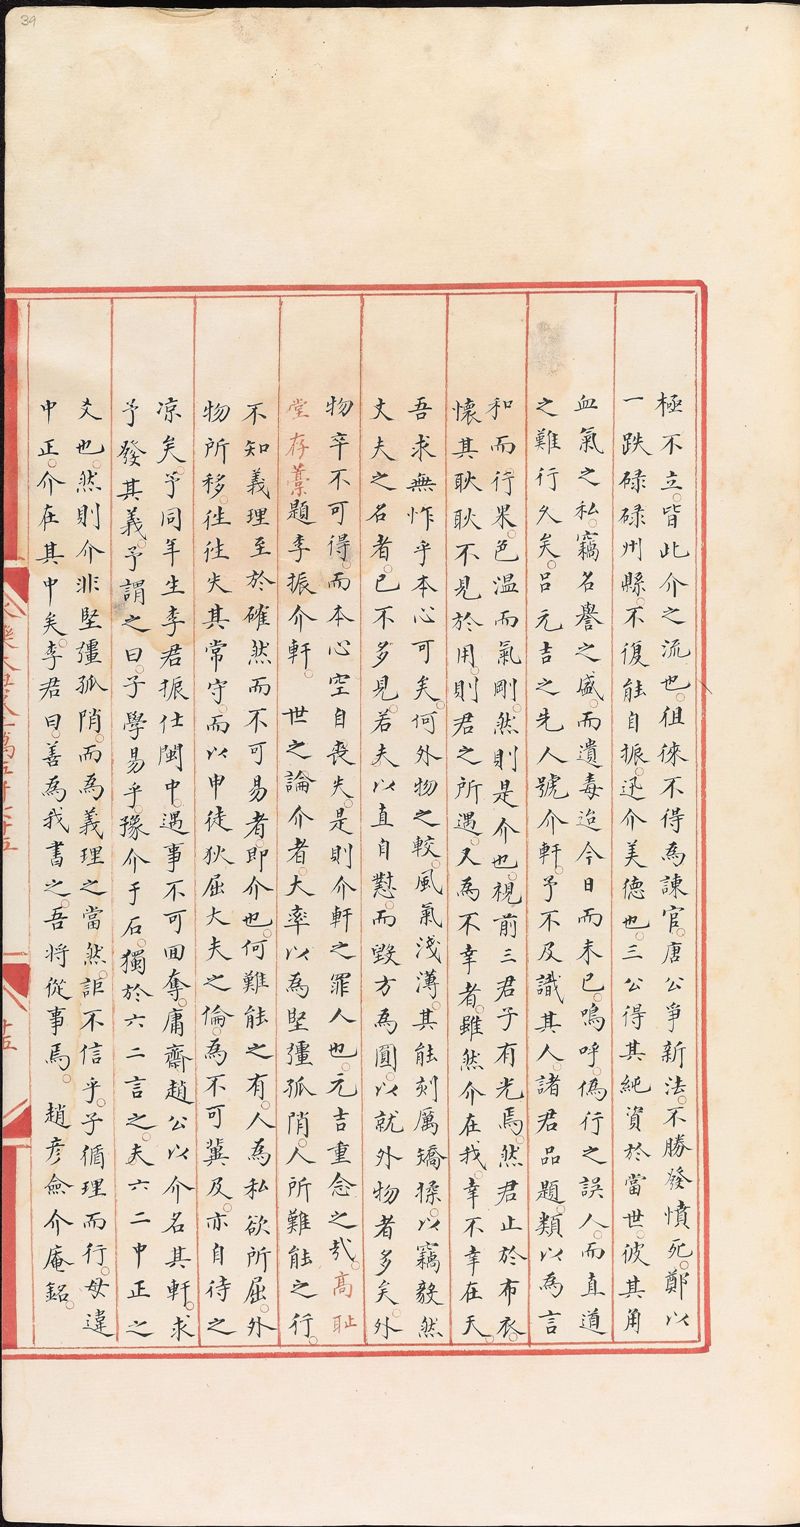 極不立。皆此介之流也。徂徠不得為諫官。唐公爭新法。不勝發憤死。鄭以
一跌碌碌州縣。不復能自振。迅介美德也。三公得其純資於當世。彼其角
血氣之私。竊名譽之盛。而遺毒迨今日而未已。嗚呼。偽行之誤人。而直道
之難行久矣。呂元吉之先人號介軒。予不及識其人。諸君品題。類以為言
和而行果。色溫而氣剛。然則是介也。視前三君子有光焉。然君止於布衣。
懷其耿耿不見於用。則君之所遇。又為不幸者。雖然介在我。幸不幸在天。
吾求無怍乎本心可矣。何外物之較。風氣淺薄。其能刻厲矯揉。以竊毅然
丈夫之名者。已不多見。若夫以直自懟。而毀方為圓。以就外物者多矣。外
物卒不可得。而本心空自喪失。是則介軒之罪人也。元吉重念之哉。高恥
堂存藁題李振介軒。 世之論介者。大率以為堅彊孤陗。人所難能之行。
不知義理至於確然而不可易者。即介也。何難能之有。人為私欲所屈。外
物所移。往往失其常守。而以申徒狄屈大夫之倫。為不可冀及。亦自待之
凉矣。予同年生李君振仕閩中。遇事不可回奪。庸齋趙公以介名其軒。求
予發其義。予謂之曰。子學易乎。豫介于石。獨於六二言之。夫六二中正之
爻也。然則介非堅彊孤陗。而為義理之當然。詎不信乎。子循理而行。毋違
中正。介在其中矣。李君曰。善為我書之。吾將從事焉。 趙彥僉介庵銘。
永樂大典卷之一萬五千七十五
十五
39